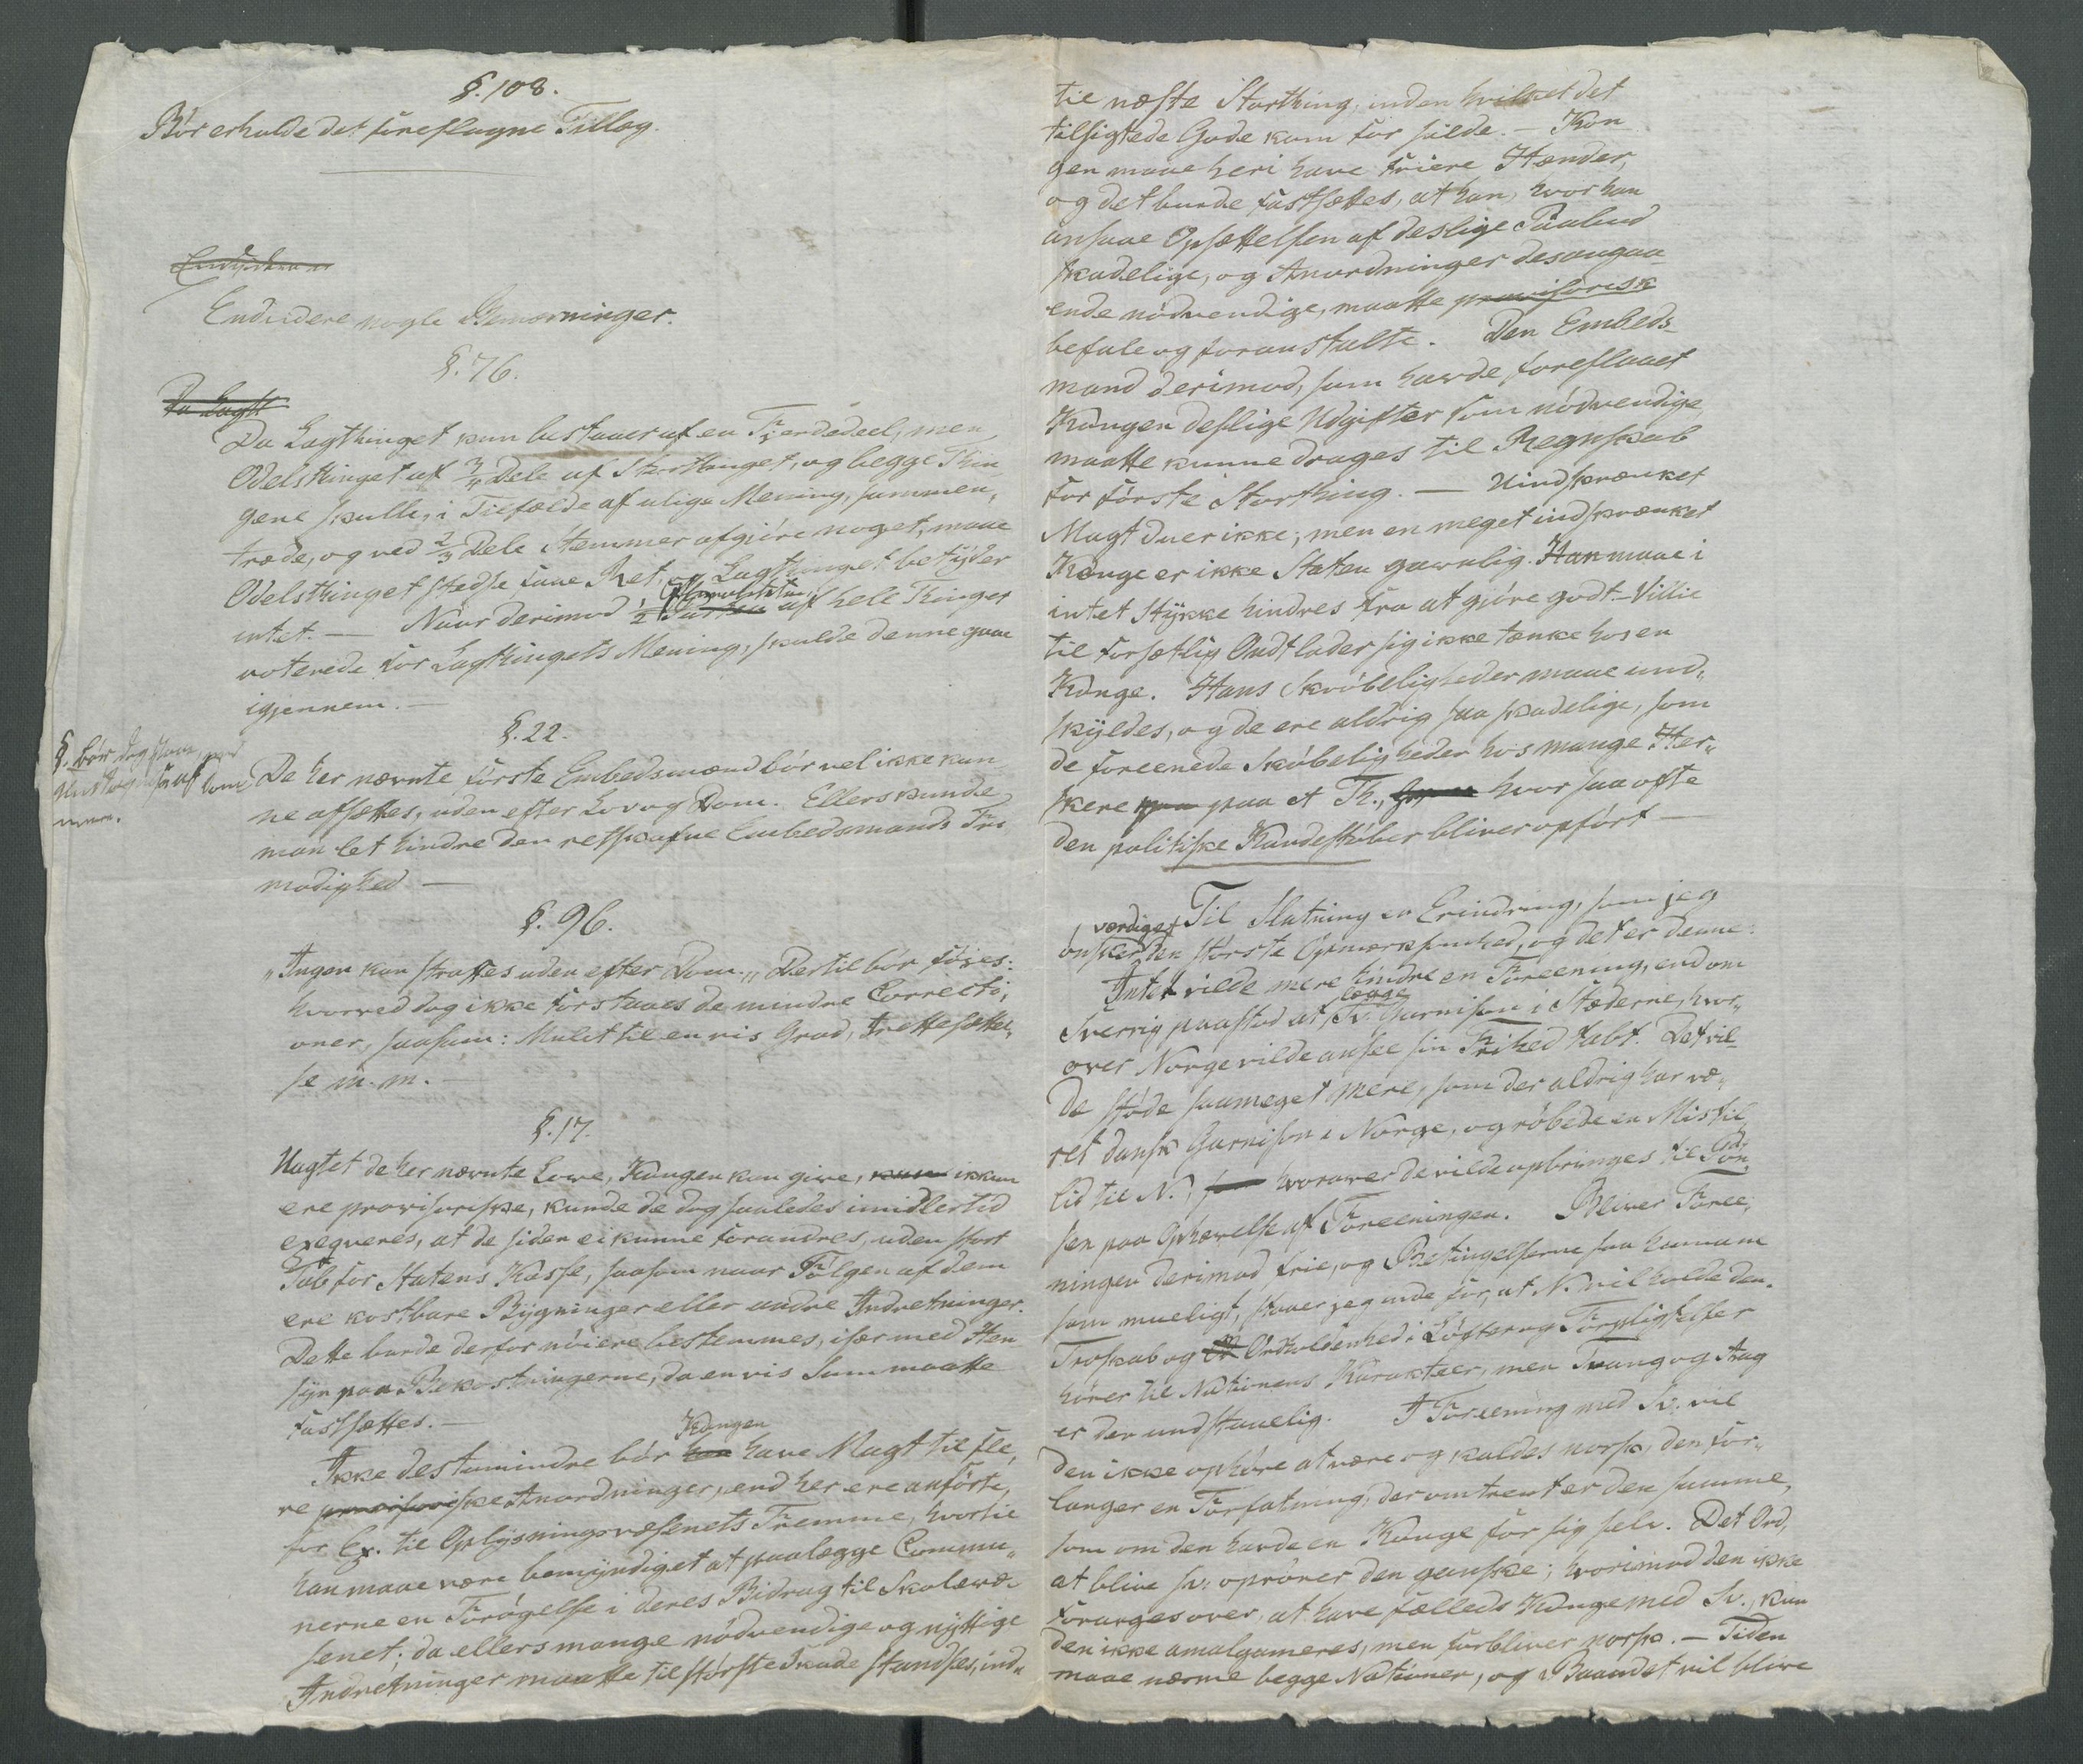 §. 108.
Bör erholde det foreslagne Tillæg.
Endvidere nogle Bemærninger.
§. 76.
Da Lagt
Da Lagthinget kun bestaaer af en Fjerdedeel, men
Odelsthinget af 3/4 Dele af Storthinget, og begge Thin
gene skulle, i Tilfælde af ulige Mening, sammen,
træde, og ved 2/3 Dele Stemmer afgjöre noget, maae
Odelsthinget stedse faae Ret, og Lagthinget betyder
intet. — Naar derimod 1/2 af hele Thinget
voterede for Lagthingets Mening, skulde denne gaae
igjennem. —
§. 22.
§. bör dog staae, med
Undtagelse af Dom
mere.
De her nævnte förste Embedsmænd bör vel ikke kun
ne afsættes, uden efter Lov og Dom. Ellers kunde
man let hindre den retskafne Embedsmands Fri
modighed —
§. 96.
"Ingen kan straffes uden efter Dom." Dertil bör föies:
hvorved dog ikke forstaaes de mindre Correcti,
oner, saasom: Mulct til en vis Grad, trettesættel,
se m.m. —
§. 17.
Uagtet de her nævnte Love, Kongen kan give, kun ikkun
ere provisoriske, kunde de dog saaledes imidlertid
exeqveres, at de siden ei kunne forandres, uden stort
Tab for Statens Kasse, saasom naar Fölgen af dem
ere kostbare Bygninger eller andre Indretninger.
Dette burde derfor nöiere bestemmes, især med Hen
syn paa Bekostningerne, da en vis Sum maatte
fastsættes. —
Kongen
Ikke destomindre bör han have Magt til fle,
re provisoriske Anordninger, end her ere anförte,
for Ex. til Oplysningsvæsenets Fremme, hvortil
han maae være bemyndiget at paalægge Commu,
nerne en Forögelse i deres Bidrag til Skolevæ
senet; da ellers mange nödvendige og nyttige
Indretninger maatte til störste Skade standses, ind,
til næste Storthing, inden hvilket det
tilsigtede Gode kom for silde. — Kon
gen maae heri have friere Hænder,
og det burde fastsættes, at han, hvor han
ansaae Opsættelsen af deslige Paabud
skadelige, og Anordninger desangaa
ende nödvendige, maatte provisorisk
befale og foranstalte. Den Embeds
mand derimod, som havde foreslaaet
Kongen deslige Udgifter som nödvendige,
maatte kunne drages til Regnskab
for förste Storthing. — Uindskrænket
Magt duer ikke; men en meget indskrænket
Konge er ikke Staten gavnlig. Han maae i
intet Stykke hindres fra at gjöre godt. — Villie
til forsætlig Ondt lader sig ikke tænke hos en
Konge. Hans Skröbeligheder maae und,
skyldes, og de ere aldrig saa skadelige, som
de foreenede Sköbeligheder hos mange Her,
skere paa paa et Th., hvor saa ofte
den politiske Kandestöber bliver opfört —
Til Slutning en Erindring, som jeg
værdiget
önsker den störste Opmærksomhed, og det er denne:
Intet vilde mere hindre en Foreening, end om
lægge
Sverrig paastod at Sv. Garnison i Stæderne, hvor,
over Norge vilde ansee sin Frihed tabt. Det vil
de stöde saameget mere, som der aldrig har væ,
ret dansk Garnison i Norge, og röbede en Mistil,
lid til N., som hvorover de vilde opbringes til
sen paa Ophævelse af Foreeningen. Bliver Foree,
ningen derimod frie, og Betingelserne saa
som mueligt, staaer jeg inde for, at N. vil holde den.
Troskab og Ordholdenhed i Löfter og Forpligtelser
hörer til Nationens Karakteer, men Tvang og Aag
er den uudstaaelig. I Foreening med Sv. vil
den ikke ophöre at være og kaldes norsk, den for,
langer en Forfatning, der omtrent er den samme,
som om den havde en Konge for sig selv. Det Ord,
at blive sv. oprörer den ganske; hvorimod den ikke
forarges over, at have fælleds Konge med Sv., kun
den ikke amalgameres, men forbliver norsk. — Tiden
maae nærme begge Nationer, og Baandet vil blive